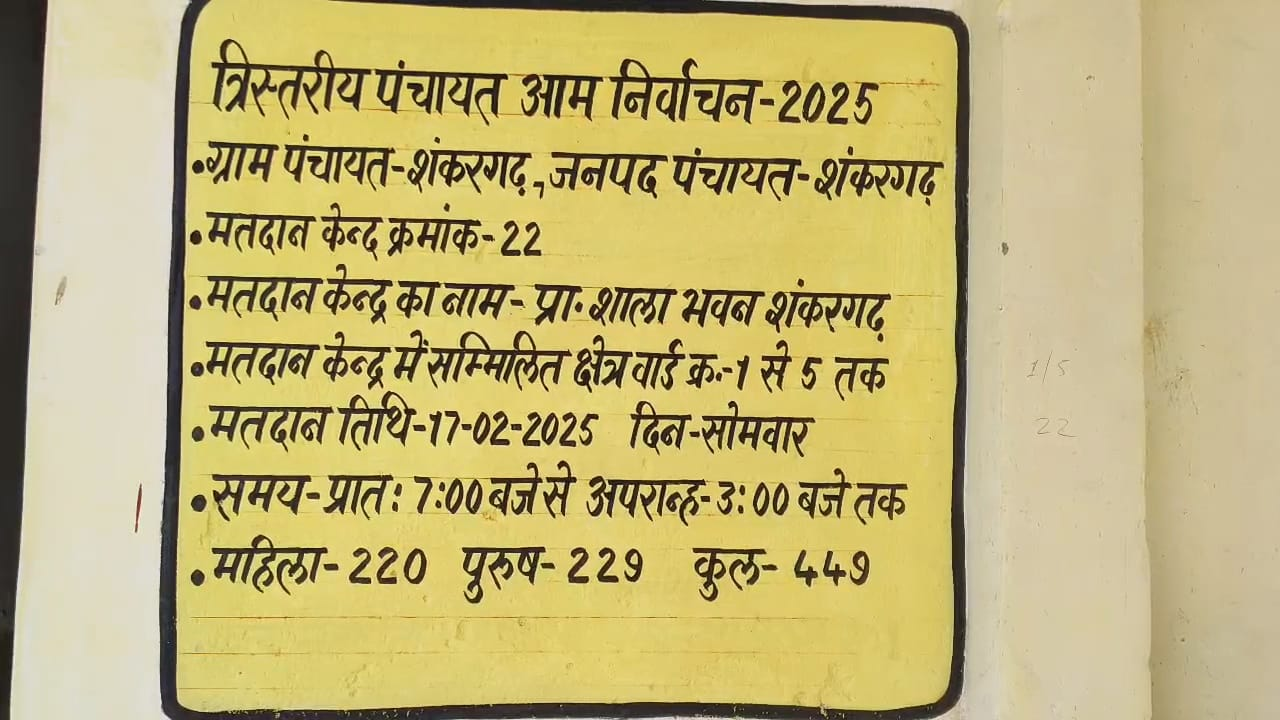 त्रिस्तरीय पंचायत आम निर्वाचन-2025
•ग्राम पंचायत-शंकरगढ़, जनपद पंचायत-शंकरगढ़
•मतदान केन्द्र क्रमांक-22
•मतदान केन्द्र का नाम- प्रा. शाला भवन शंकरगढ़
•मतदान केन्द्र में सम्मिलित क्षेत्र वार्ड क्र.-1 से 5 तक
•मतदान तिथि-17-02-2025 दिन-सोमवार
•समय-प्रात: 7:00 बजे से अपरान्ह-3:00 बजे तक
•महिला-220 पुरुष-229 कुल-449
1/5
22